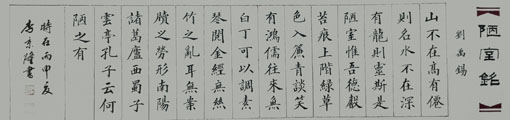 陋室銘
劉禹錫
山不在高有僊
則名水不在深
有龍則靈斯是
陋室惟吾德馨
苔痕上階綠草
色入簾青談笑
有鴻儒往來無
白丁可以調素
琴閱金經無絲
竹之亂耳無案
牘之勞形南陽
諸葛廬西蜀子
雲亭孔子云何
陋之有
時在丙申夏